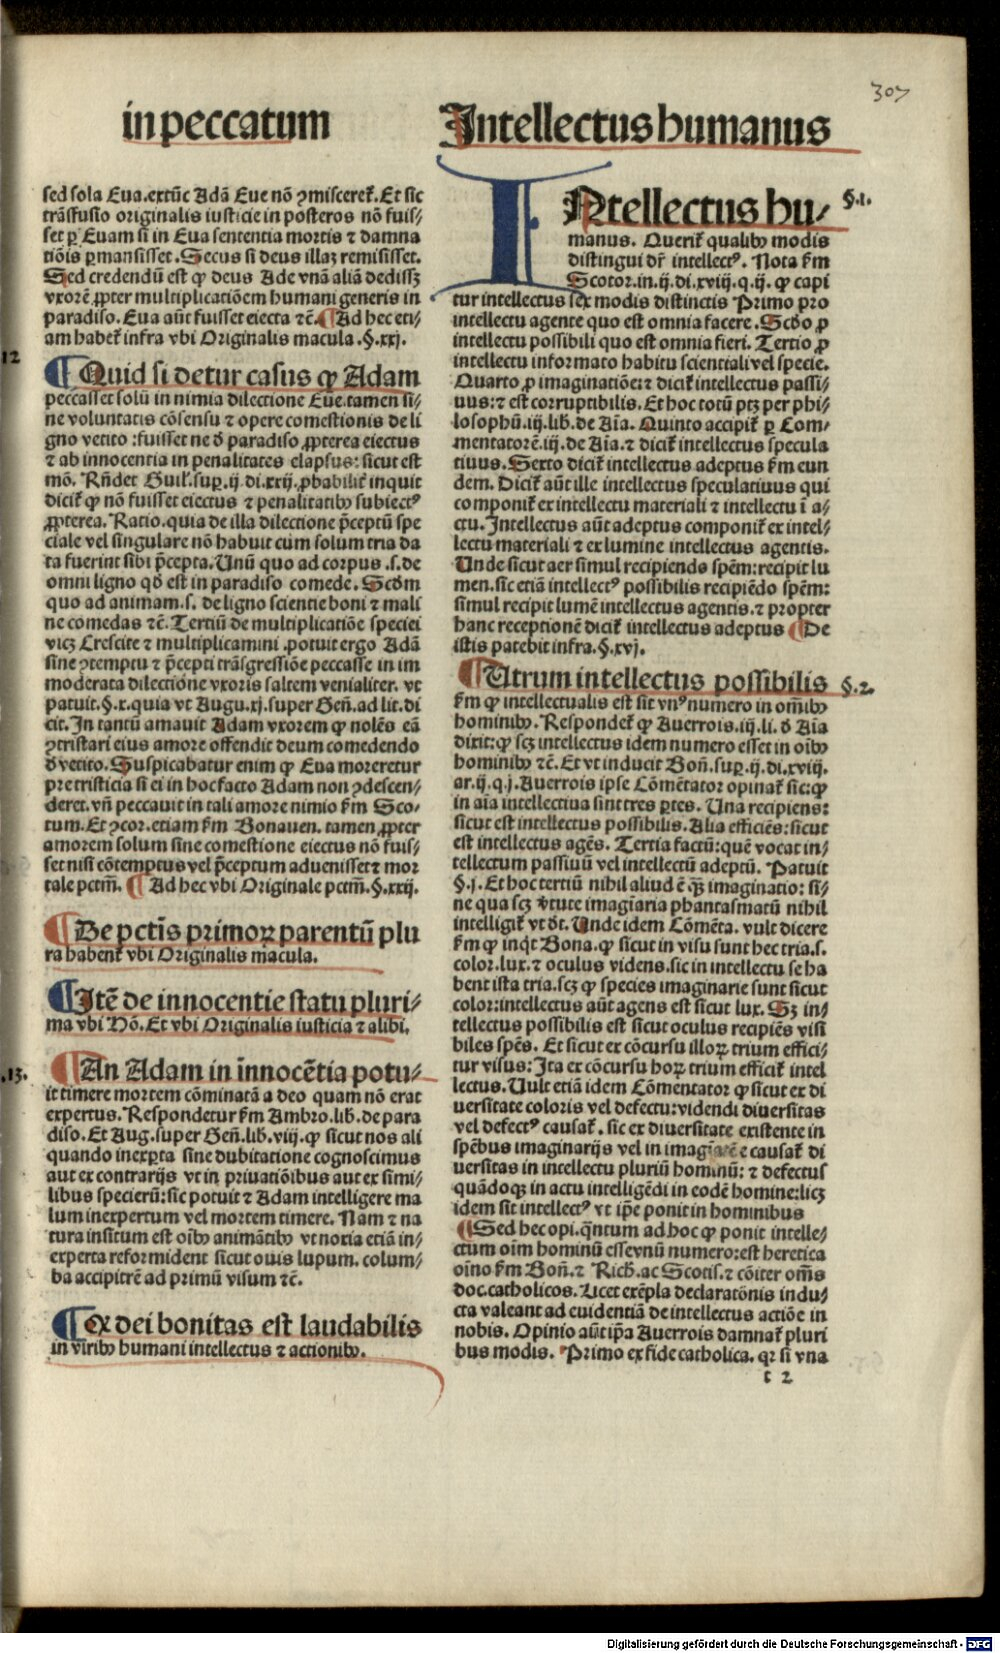 307
in peccatum
Intellectus humanus
sed sola Eua. extūc Adā Eue nō ꝯmisceret̉. Et sic
trāsfusio originalis iusticie in posteros nō fuis⸗
set ꝑ Euam si in Eua sententia mortis ⁊ damna
tiōis ꝑmansisset. Secus si deus illaꝫ remisisset.
Sed credendū est ꝙ deus Ade vnā aliā dedissꝫ
vxorē ꝓpter multiplicatiōem humani generis in
paradiso. Eua aūt fuisset eiecta ⁊cē. ¶ Ad hec eti⸗
am habet̉ infra vbi Originalis macula. §. xxj.
12
¶ Quid si detur casus ꝙ Adam
peccasset solū in nimia dilectione Eue. tamen si⸗
ne voluntatis cōsensu ⁊ opere comestionis de li
gno vetito : fuisset ne d̄ paradiso ꝓpterea eiectus
⁊ ab innocentia in penalitates elapsus: sicut est
mō. Rn̄det Guil̉. suꝑ. ij. di. xxij. ꝓbabilit̉ inquit
dicit̉ ꝙ nō fuisset eiectus ⁊ penalitatibꝰ subiectꝰ
ꝓpterea. Ratio. quia de illa dilectione p̄ceptū spe
ciale vel singulare nō habuit cum solum tria da
ta fuerint sibi p̄cepta. Unū quo ad corpus .s. de
omni ligno qd̄ est in paradiso comede. Scd̄m
quo ad animam. s. de ligno scientie boni ⁊ mali
ne comedas ⁊cē. Tertiū de multiplicatiōe speciei
vicꝫ Crescite ⁊ multiplicamini. potuit ergo Adā
sine ꝯtemptu ⁊ p̄cepti trāsgressiōe peccasse in im
moderata dilectione vxoris saltem venialiter. vt
patuit. §. x. quia vt Augu. xj. super Gen̄. ad lit. di
cit. In tantū amauit Adam vxorem ꝙ nolēs eā
ꝯtristari eius amore offendit deum comedendo
d̄ vetito. Suspicabatur enim ꝙ Eua moreretur
pre tristicia si ei in hoc facto Adam non ꝯdescen⸗
deret. vn̄ peccauit in tali amore nimio f̄m Sco⸗
tum. Et ꝯcor. etiam f̄m Bonauen. tamen ꝓpter
amorem solum sine comestione eiectus nō fuis⸗
set nisi cōtemptus vel p̄ceptum aduenisset ⁊ mor
tale pctm̄. ¶ Ad hec vbi Originale pctm̄. §. xxij.
¶ De pctīs primoꝝ parentū plu
ra habent̉ vbi Originalis macula.
¶ Itē de innocentie statu pluri⸗
ma vbi Hō. Et vbi Originalis iusticia ⁊ alibi.
.13.
¶ An Adam in īnocētia potu⸗
it timere mortem cōminatā a deo quam nō erat
expertus. Respondetur f̄m Ambro. lib̄. de para
diso. Et Aug. super Gen̄. lib̄. viij. ꝙ sicut nos ali
quando inexꝑta sine dubitatione cognoscimus
aut ex contrarijs vt in priuatiōibus aut ex simi⸗
libus specierū: sic potuit ⁊ Adam intelligere ma
lum inexpertum vel mortem timere. Nam ⁊ na
tura insitum est oībꝰ animātibꝰ vt noxia etiā in⸗
experta reformident sicut ouis lupum. colum⸗
ba accipitrē ad primū visum ⁊cē.
¶ Ex dei bonitas est laudabilis
in viribꝰ humani intellectus ⁊ actionibꝰ.
§.1.
INtellectus hu⸗
manus. Querit̉ qualibꝰ modis
distingui dr̄ intellectꝰ. Nota f̄m
Scotor. in. ij. di. xviij. q. ij. ꝙ capi
tur intellectus sex modis distinctis Primo pro
intellectu agente quo est omnia facere. Scd̄o ꝓ
intellectu possibili quo est omnia fieri. Tertio ꝓ
intellectu informato habitu scientiali vel specie.
Quarto ꝓ imaginatiōe: ⁊ dicit̉ intellectus passi⸗
uus: ⁊ est corruptibilis. Et hoc totū ptꝫ per phi⸗
losophū. iij. lib. de Aīa. Quinto accipit̉ ꝑ Com⸗
mentatorē. iij. de Aīa. ⁊ dicit̉ intellectus specula
tiuus. Sexto dicit̉ intellectus adeptus f̄m eun
dem. Dicit̉ aūt ille intellectus speculatiuus qui
componit̉ ex intellectu materiali ⁊ intellectu ī a⸗
ctu. Intellectus aūt adeptus componit̉ ex intel⸗
lectu materiali ⁊ ex lumine intellectus agentis.
Unde sicut aer simul recipiendo spēm: recipit lu
men. sic etiā intellectꝰ possibilis recipiēdo spēm:
simul recipit lumē intellectus agentis. ⁊ propter
hanc receptionē dicit̉ intellectus adeptus ¶ De
istis patebit infra. §. xvj.
§.2.
¶ Utrum intellectus possibilis
f̄m ꝙ intellectualis est sit vnꝰ numero in om̄ibꝰ
hominibꝰ. Respondet̉ ꝙ Auerrois. iij. li. d̄ Aīa
dixit: ꝙ scꝫ intellectus idem numero esset in oībꝰ
hominibꝰ ⁊cē. Et vt inducit Bon̄. suꝑ. ij. di. xviij.
ar. ij. q. j. Auerrois ipse Cōmētator opinat̉ sic: ꝙ
in aīa intellectiua sint tres ꝑtes. Una recipiens:
sicut est intellectus possibilis. Alia efficiēs: sicut
est intellectus agēs. Tertia factū: quē vocat in⸗
tellectum passiuū vel intellectū adeptū. Patuit
§. j. Et hoc tertiū nihil aliud ē qꝫ imaginatio: si⸗
ne qua scꝫ v̄tute imagīaria phantasmatū nihil
intelligit̉ vt d̄t. Unde idem Cōmēta. vult dicere
f̄m ꝙ inqt̉ Bona. ꝙ sicut in visu sunt hec tria. s.
color. lux. ⁊ oculus videns. sic in intellectu se ha
bent ista tria. scꝫ ꝙ species imaginarie sunt sicut
color: intellectus aūt agens est sicut lux. Sꝫ in⸗
tellectus possibilis est sicut oculus recipiēs visi
biles spēs. Et sicut ex cōcursu illoꝝ trium effici⸗
tur visus: Ita ex cōcursu hoꝝ trium efficit̉ intel
lectus. Uult etiā idem Cōmentator ꝙ sicut ex di
uersitate coloris vel defectu: videndi diuersitas
vel defectꝰ causat̉. sic ex diuersitate existente in
spēbus imaginarijs vel in imagīatiōe causat̉ di
uersitas in intellectu pluriū hominū: ⁊ defectus
quādoqꝫ in actu intelligēdi in eodē homine: licꝫ
idem sit intellectꝰ vt ip̄e ponit in hominibus
¶ Sed hec opi. qn̄tum ad hoc ꝙ ponit intelle⸗
ctum oīm hominū esse vnū numero: est heretica
oīno f̄m Bon̄. ⁊ Rich̄. ac Scotis. ⁊ cōiter om̄s
doc. catholicos. Licet exēpla declaratōnis indu⸗
cta valeant ad euidentiā de intellectus actiōe in
nobis. Opinio aūt ip̄a Auerrois damnat̉ pluri
bus modis. Primo ex fide catholica. qꝛ si vna
c 2
Digitalisierung gefördert durch die Deutsche Forschungsgemeinschaft - DFG